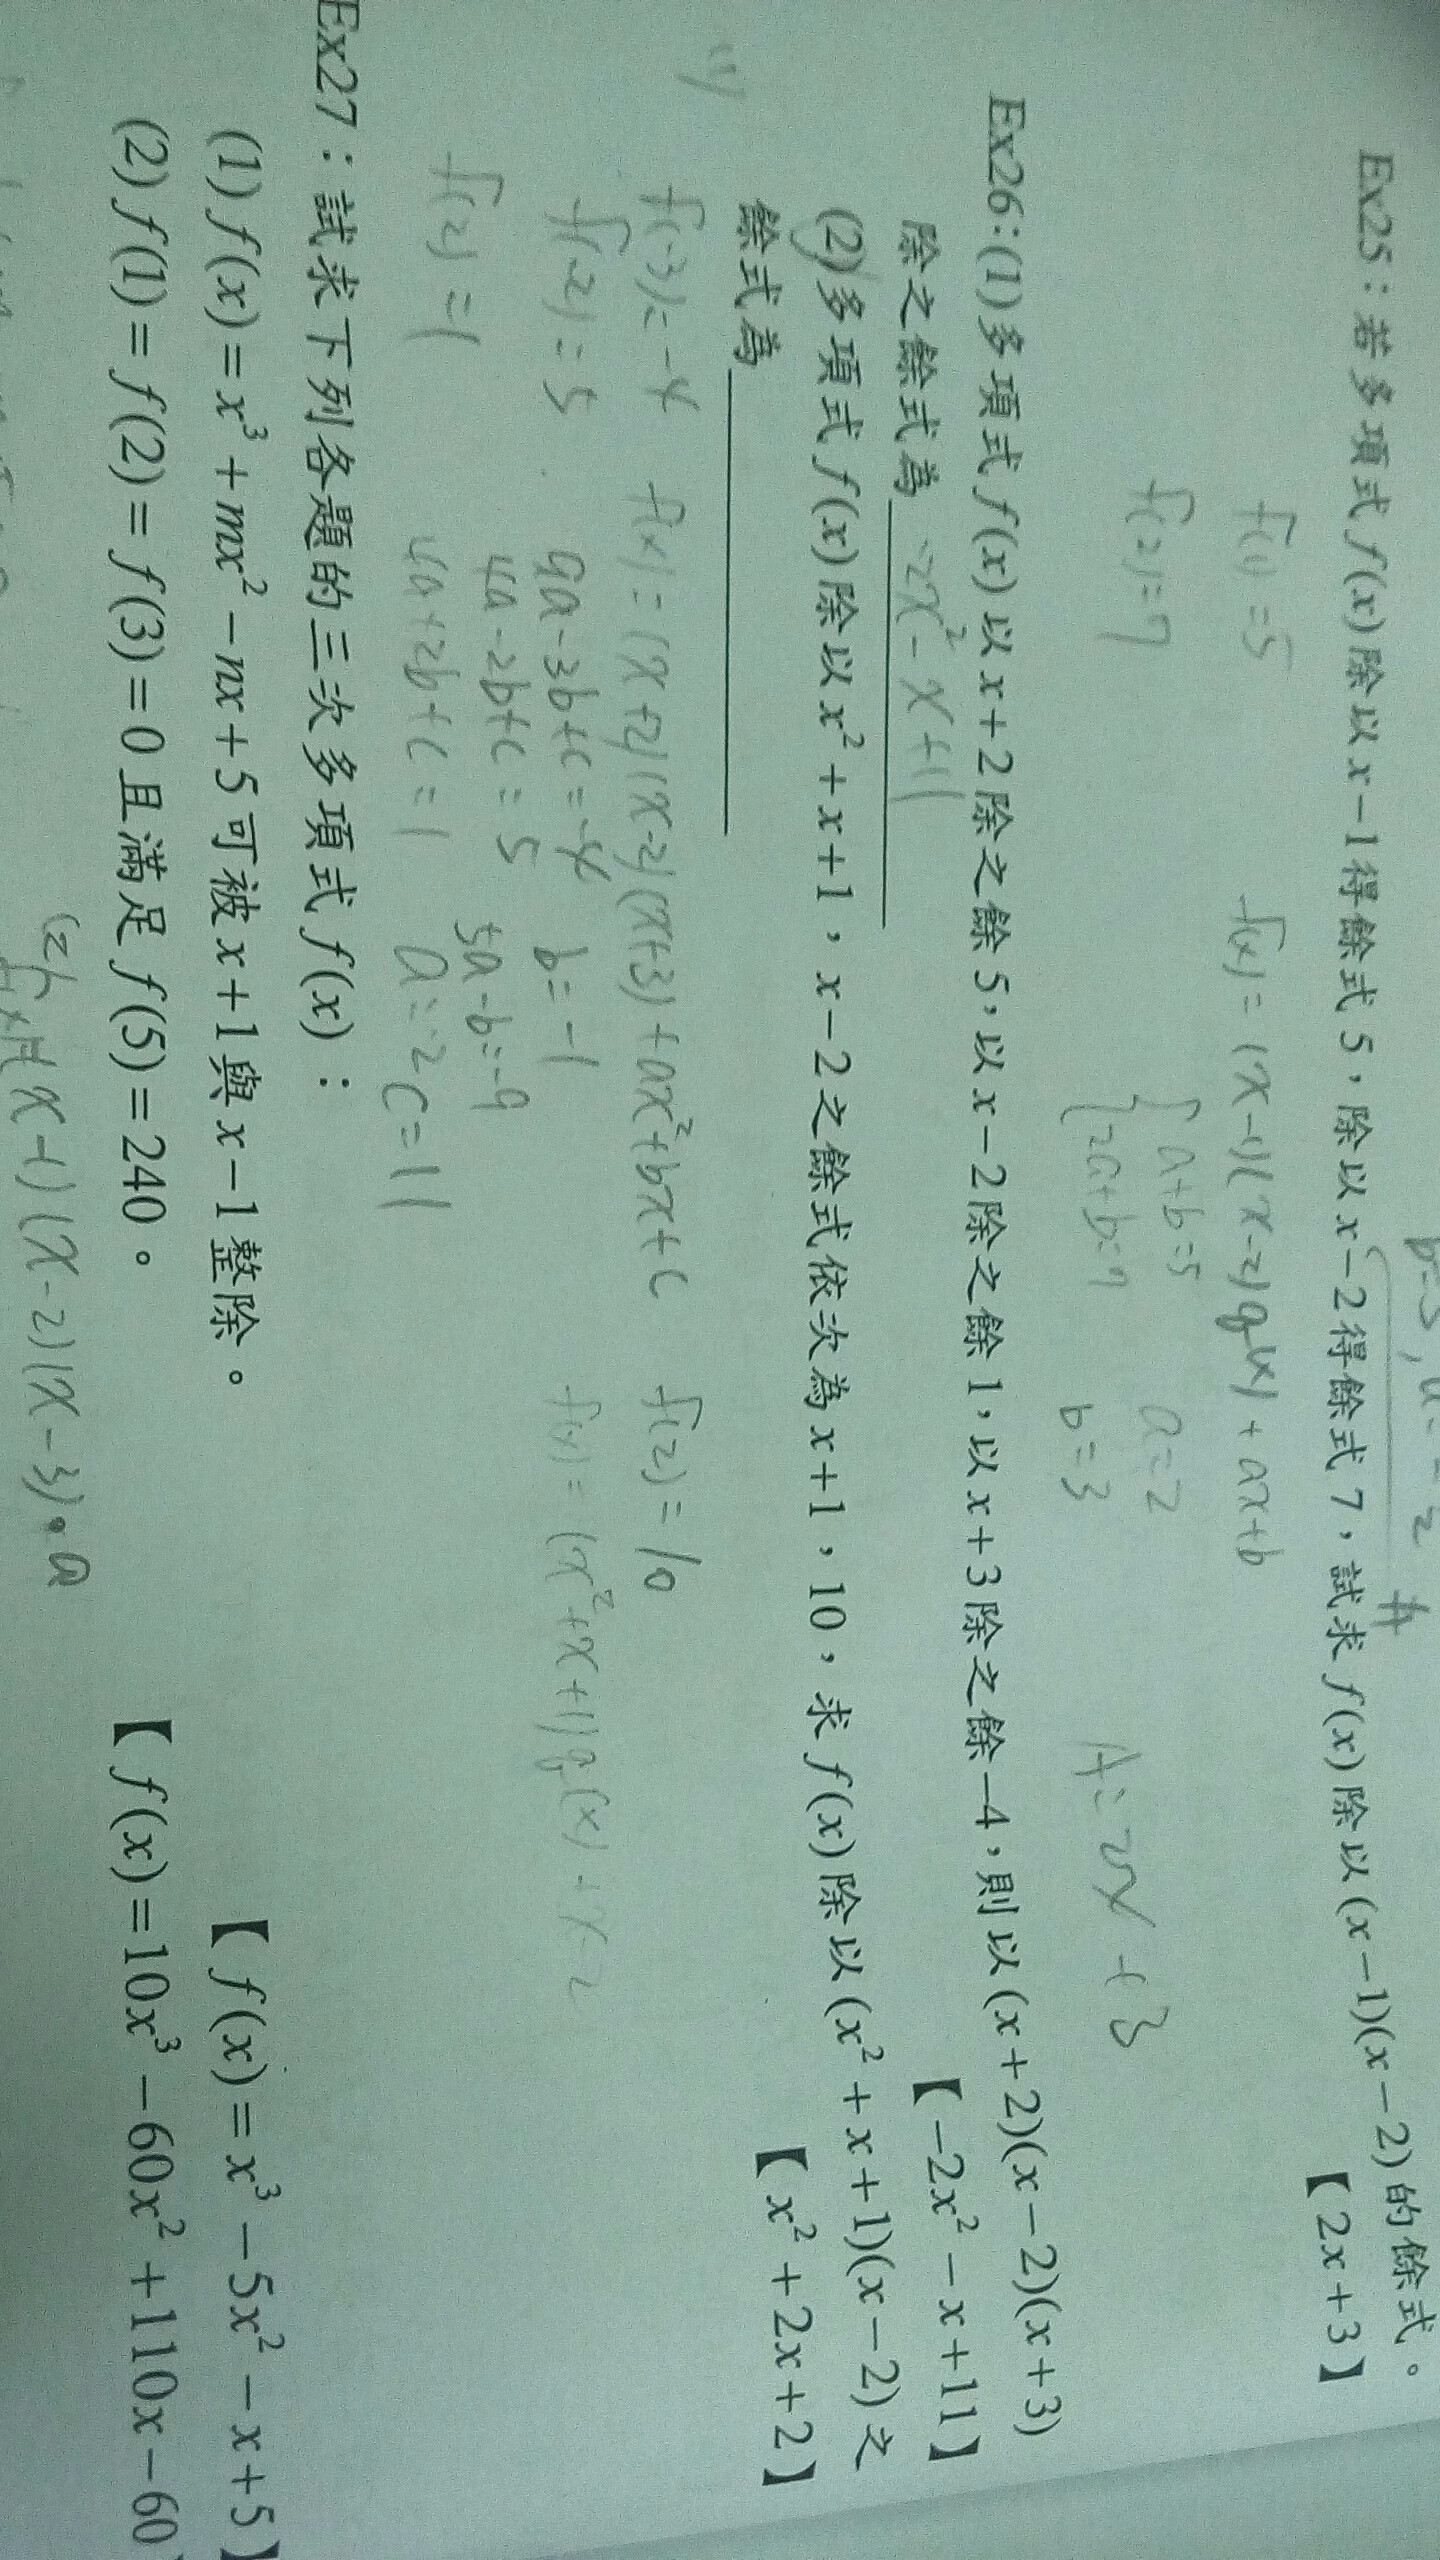 b=3, a=-2 #
Ex25：若多項式 f(x) 除以 x−1 得餘式 5，除以 x−2 得餘式 7，試求 f(x) 除以 (x−1)(x−2) 的餘式。
【2x+3】
f(1)=5 f(x)=(x-1)(x-2)q(x)+ax+b
f(2)=7 { a+b=5 a=2
2a+b=7 b=3 A=2x+3
Ex26：(1)多項式 f(x) 以 x+2 除之餘 5，以 x−2 除之餘 1，以 x+3 除之餘 −4，則以 (x+2)(x−2)(x+3)
除之餘式為 -2x²-x+11 【−2x²−x+11】
(2)多項式 f(x) 除以 x²+x+1，x−2 之餘式依次為 x+1，10，求 f(x) 除以 (x²+x+1)(x−2) 之
餘式為 【x²+2x+2】
(1)
f(-3)=-4 f(x)=(x+2)(x-2)(x+3)+ax²+bx+c f(2)=10
f(-2)=5 9a-3b+c=-4 b=-1 f(x)=(x²+x+1)q(x)
4a-2b+c=5 5a-b=-9
f(2)=1 4a+2b+c=1 a=-2 c=11
Ex27：試求下列各題的三次多項式 f(x)：
(1) f(x)=x³+mx²−nx+5 可被 x+1 與 x−1 整除。 【f(x)=x³−5x²−x+5】
(2) f(1)=f(2)=f(3)=0 且滿足 f(5)=240。 【f(x)=10x³−60x²+110x−60】
(2)
f(x)=(x-1)(x-2)(x-3)·a